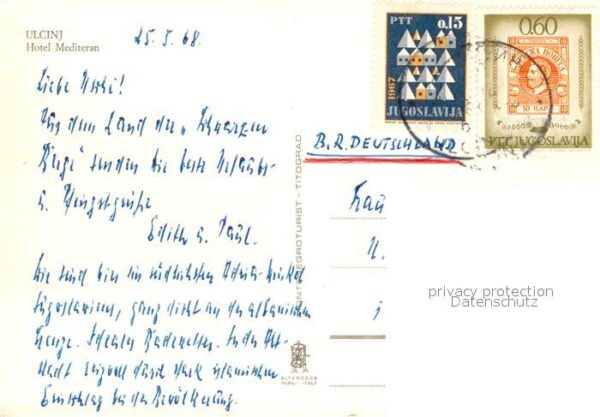 ULCINJ
Hotel Mediteran
25.5.68.
Liebe Uschi!
Aus dem Land der „Schwarzen
Berge" senden die beste Urlaubs-
u. Pfingstgrüße
Edith u. Paul.
Wir sind hier im südlichsten Adria-Winkel
Jugoslawiens, ganz dicht an der albanischen
Grenze. Ideales Badewetter. In der Alt-
stadt reizvoll durch stark islamischen
Einschlag bei der Bevölkerung.
MONTENEGROTURIST - TITOGRAD
ALTEROCCA
TERNI - ITALY
PTT 0,15
1967
JUGOSLAVIJA
0.60
10 ПАРА 10
1866 1966
PTT JUGOSLAVIJA
B.R. DEUTSCHLAND
Frau
U.
privacy protection
Datenschutz